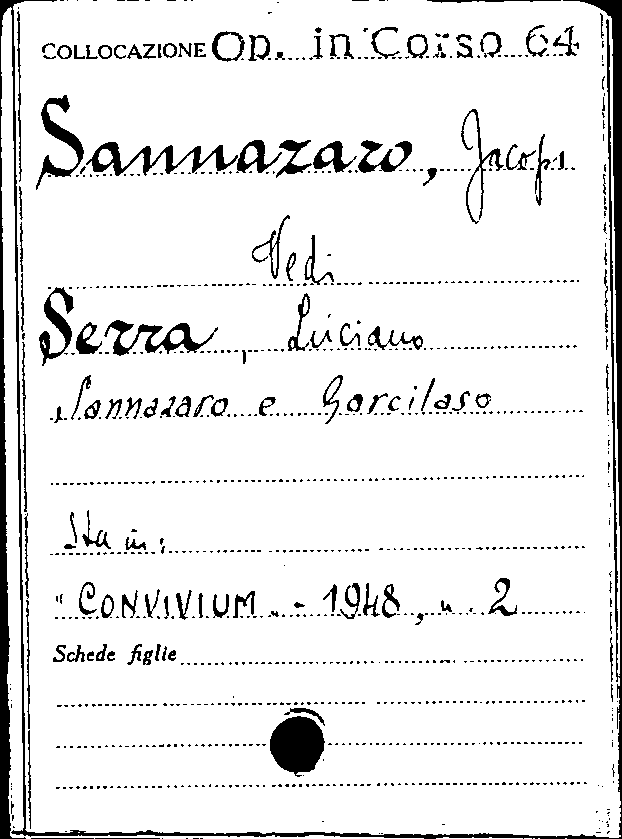 COLLOCAZIONE Op. in Corso 64
Sannazaro, Jacopo
Vedi
Serra, Luciano
Sannazaro e Garcilaso
Sta in:
"CONVIVIUM" - 1948, n. 2
Schede figlie